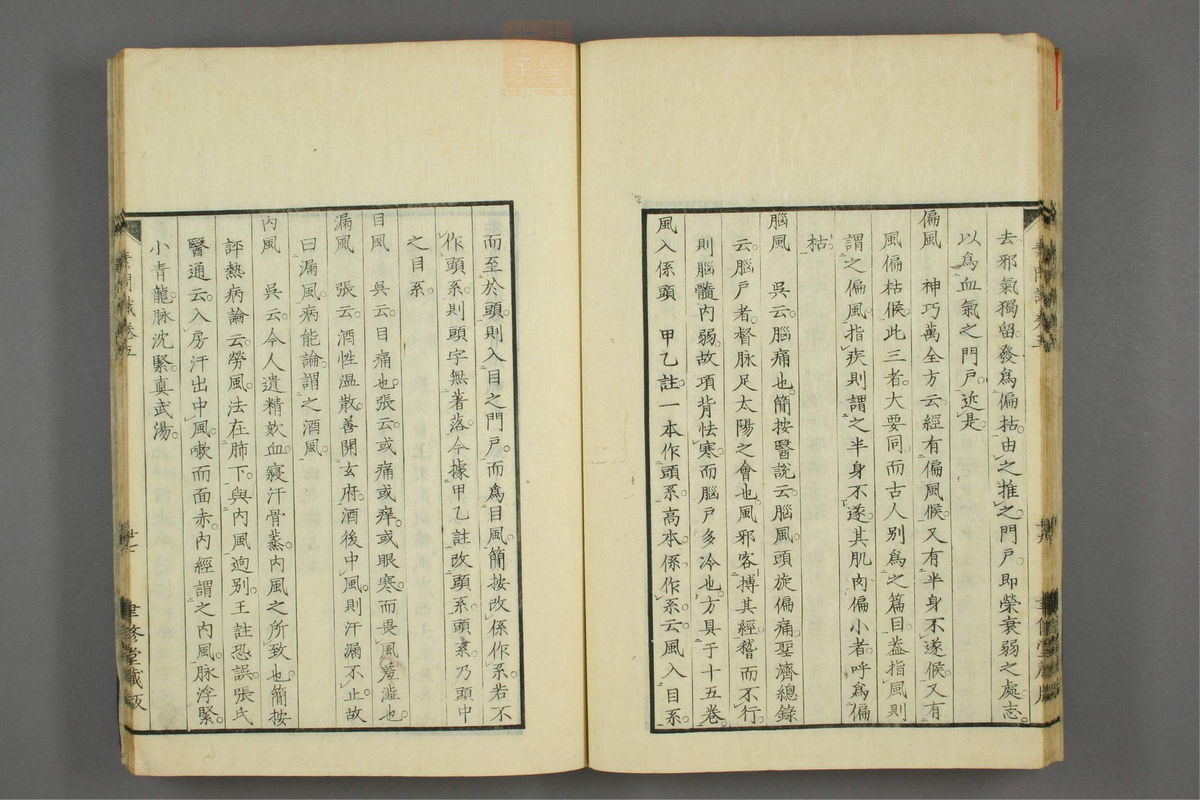 去邪氣獨留發爲偏枯由之推之門戶即榮衰弱之處志
以爲血氣之門戶近是
偏風　神巧萬全方云經有偏風候又有半身不遂候又有
風偏枯候此三者大要同而古人別爲之篇目蓋指風則
謂之偏風指疾則謂之半身不遂其肌肉偏小者呼爲偏
枯
腦風　吳云腦痛也簡按醫說云腦風頭旋偏痛聖濟總錄
云腦戶者督脉足太陽之會也風邪客搏其經稽而不行
則腦髓內弱故項背怯寒而腦戶多冷也方具于十五卷
風入係頭　甲乙註一本作頭系高本係作系云風入目系
而至於頭則入目之門戶而爲目風簡按改係作系若不
作頭系則頭字無著落今據甲乙註改頭系頭系乃頭中
之目系
目風　吳云目痛也張云或痛或痒或眼寒而畏風羞澁也
漏風　張云酒性溫散善開玄府酒後中風則汗漏不止故
曰漏風病能論謂之酒風
內風　吳云今人遺精欬血寢汗骨蒸內風之所致也簡按
評熱病論云勞風法在肺下與內風逈別王註恐誤張氏
醫通云入房汗出中風嗽而面赤內經謂之內風脉浮緊
小青龍脉沈緊眞武湯
素問識卷五
廿七
聿修堂藏版